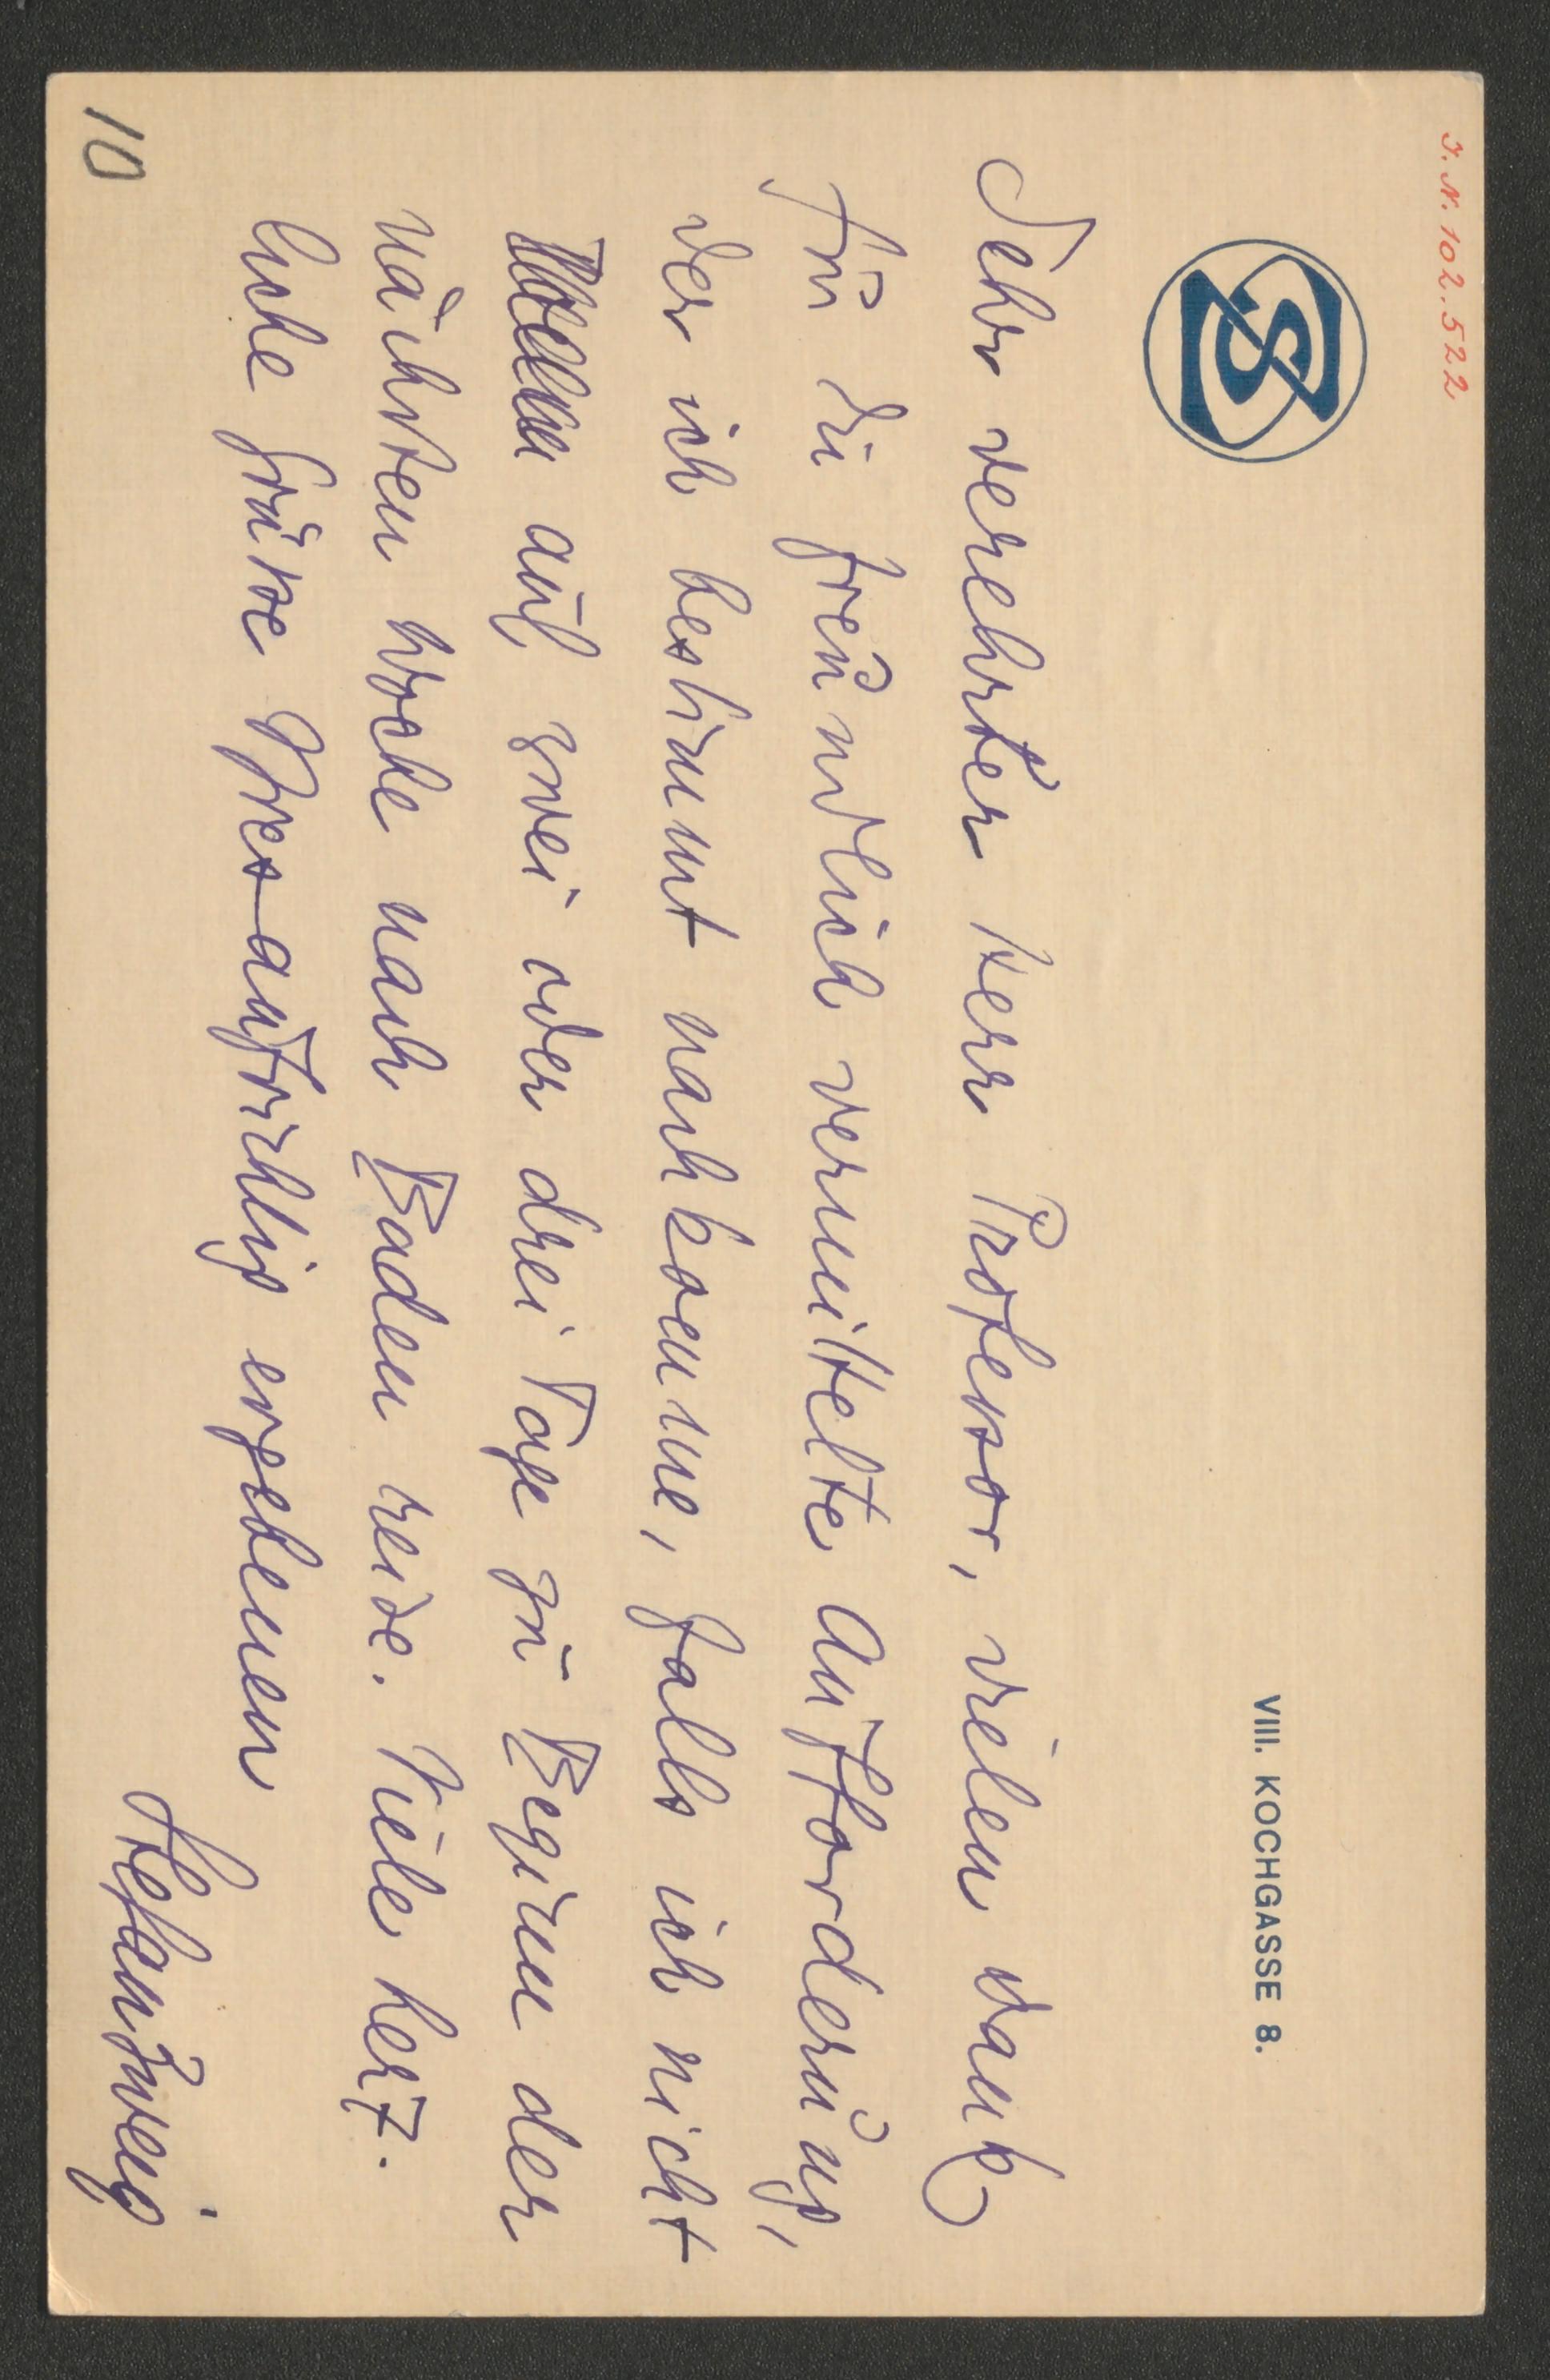 I. N. 102.522
SZ
VIII. KOCHGASSE 8.
Sehr verehrter Herr Professor, vielen Dank
für die freundlich vermittelte Aufforderung,
der ich bestimmt nachkomme, falls ich nicht
auf zwei oder drei Tage zu Beginn der
nächsten Woche nach Baden reise. Viele herz-
liche Grüsse Ihres aufrichtig ergebenen
Stefan Zweig
10